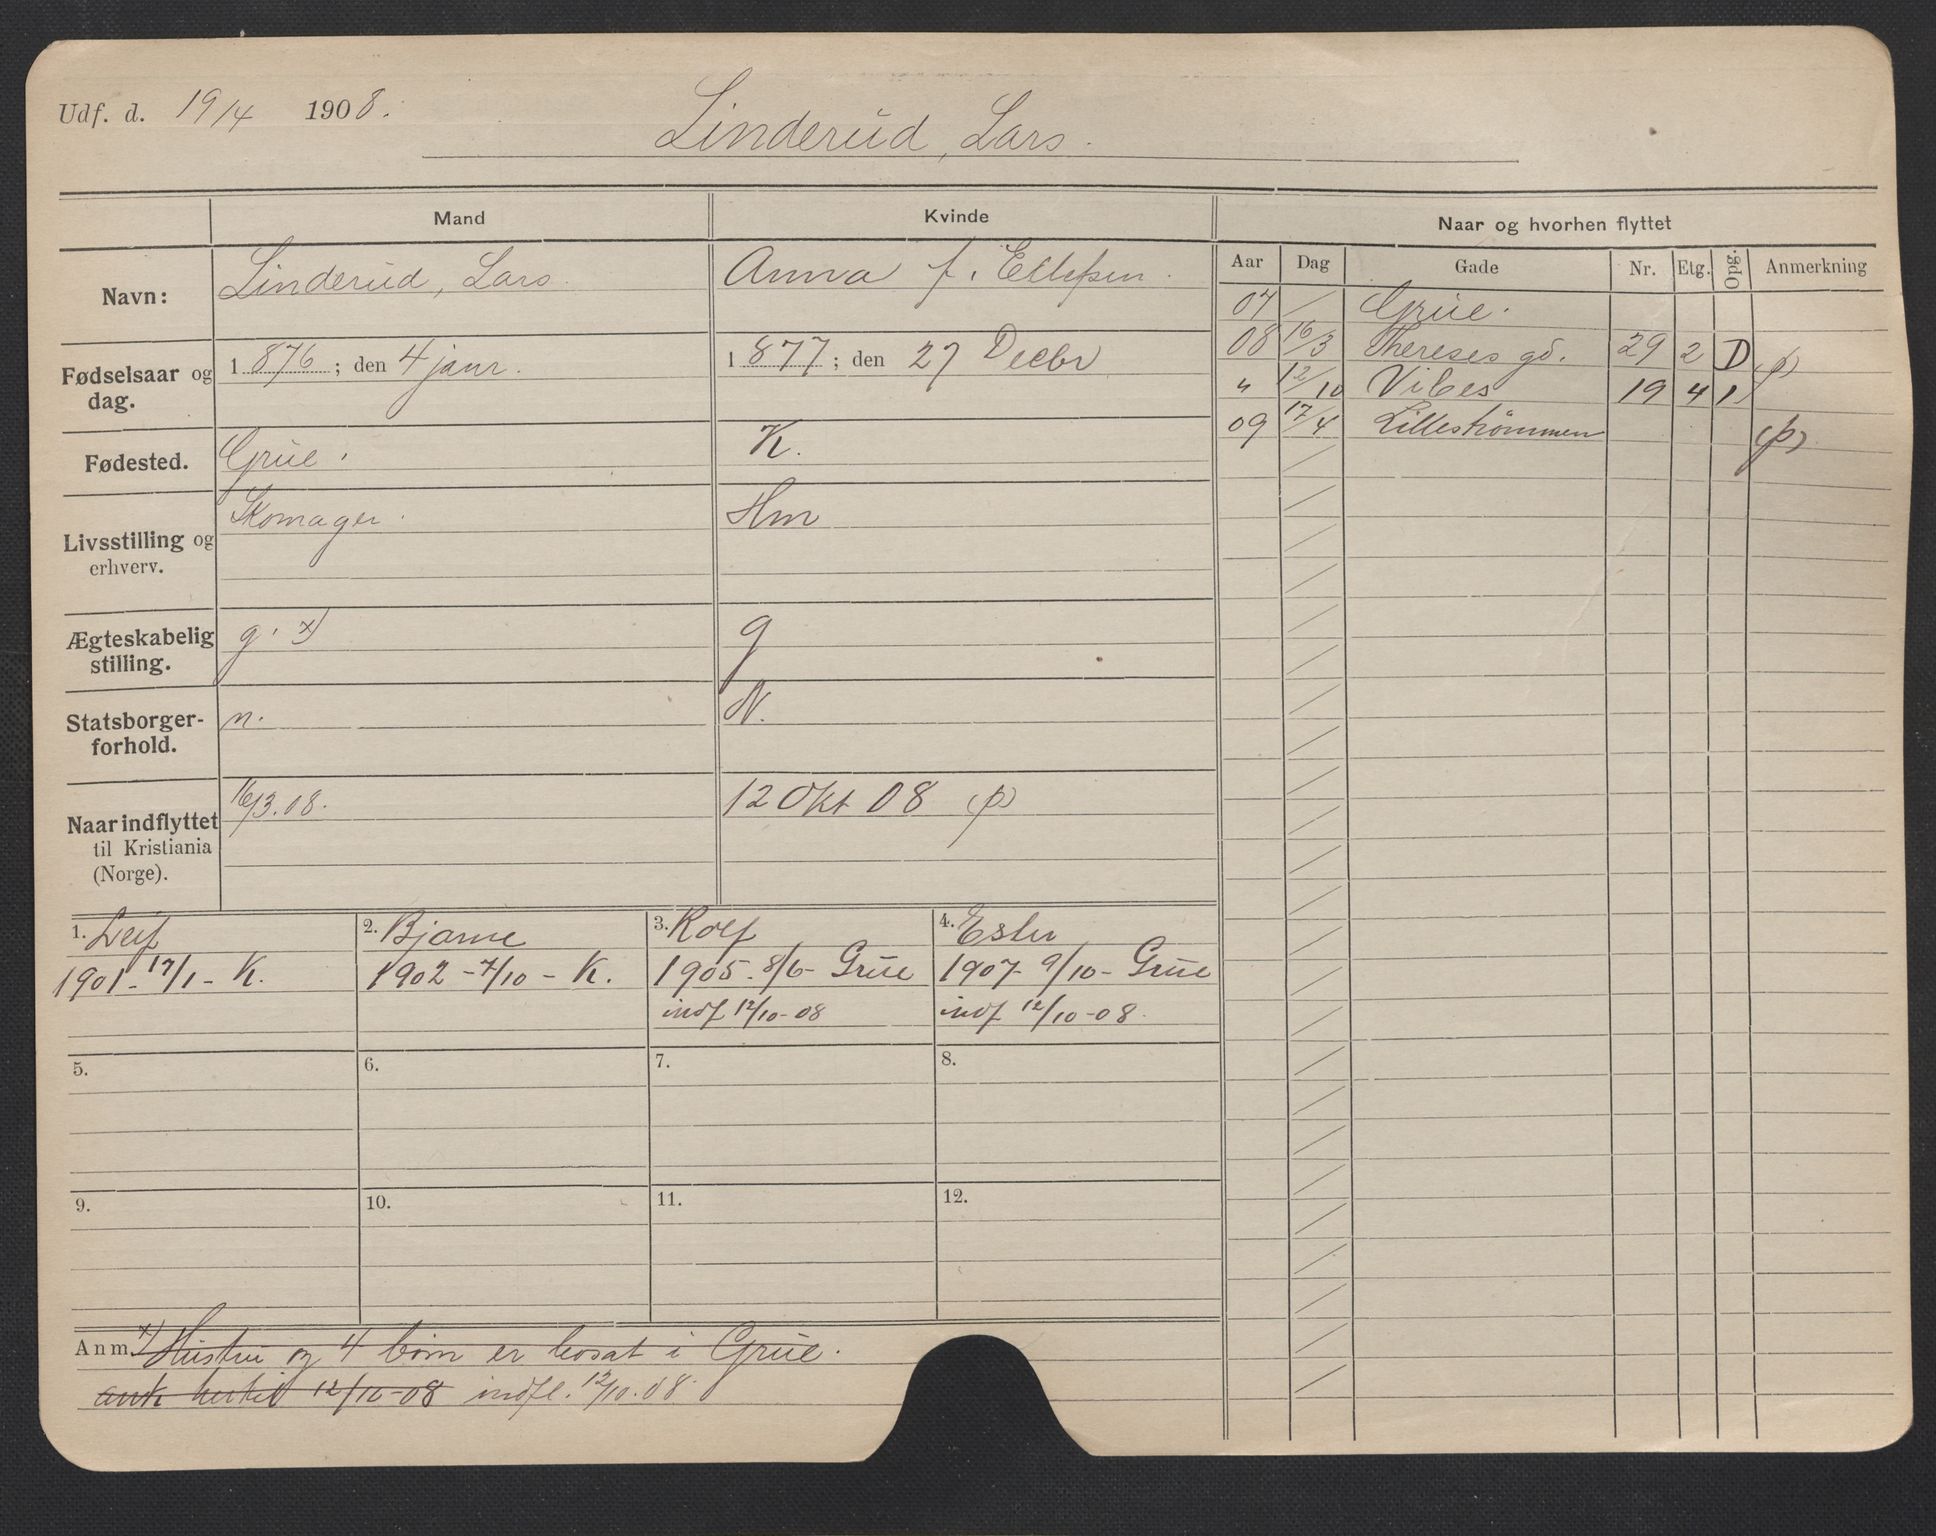 Udf. d. 19/4 1908.
Linderud, Lars.
Mand
Kvinde
Naar og hvorhen flyttet
Aar Dag Gade Nr. Etg. Opg. Anmerkning
Navn: Linderud, Lars. Anna f. Ellefsen.
Fødselsaar og dag. 1876; den 4 janr. 1877; den 27 Decbr
Fødested. Grue. K.
Livsstilling og erhverv. Skomager. Hm
Ægteskabelig stilling. g. x) g
Statsborgerforhold. n. N.
Naar indflyttet til Kristiania (Norge). 16/3.08. 12 Okt 08 (p)
07 / Grue.
08 16/3 Thereses gd. 29 2 D
" 12/10 Vibes 19 4 1 (p)
09 17/4 Lillestrømmen (p)
1. Leif
1901 - 17/1 - K.
2. Bjarne
1902 - 7/10 - K.
3. Rolf
1905 - 8/6 - Grue
indf 12/10-08
4. Ester
1907 - 9/10 - Grue
indf 12/10-08.
5. 6. 7. 8.
9. 10. 11. 12.
Anm. x) Hustru og 4 børn er bosat i Grue.
ank hertil 12/10-08 indfl. 12/10.08.